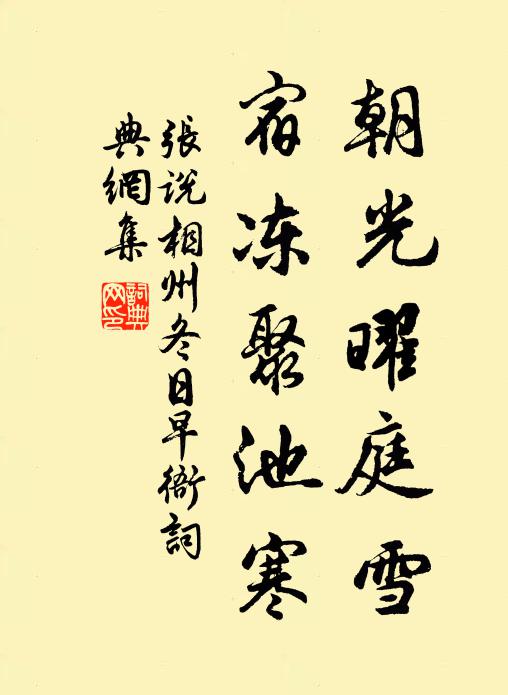 朝光曜庭雪
宿冻聚池寒
張説相州冬日早衙詞
典網集
詞典網印